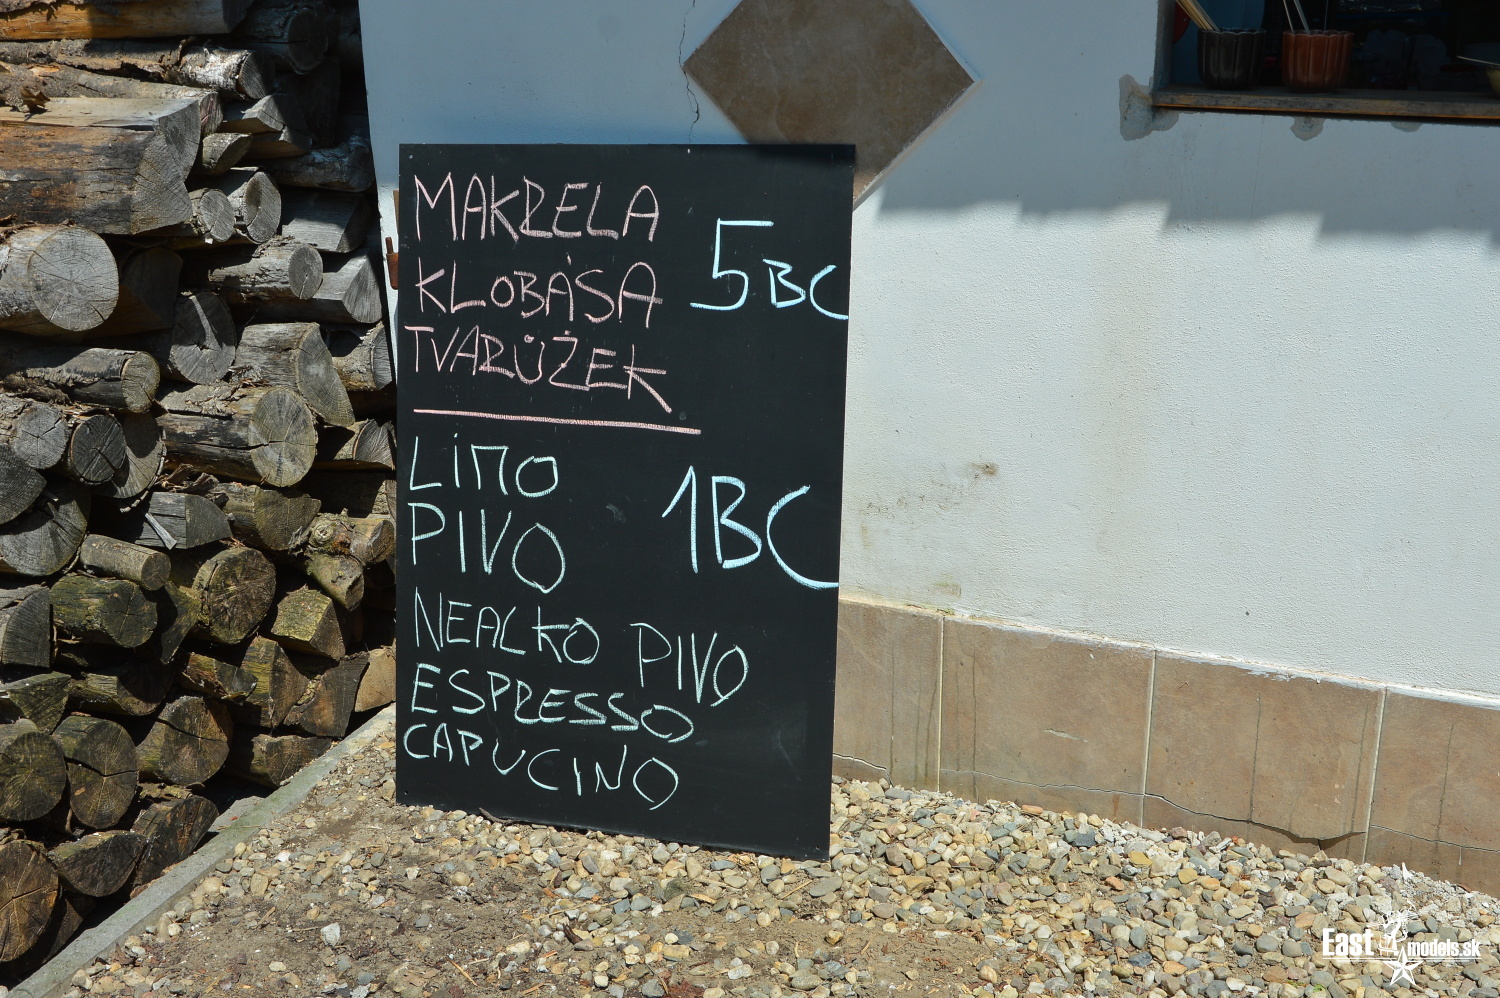 MAKRELA
KLOBÁSA
5BC
TVARŮŽEK
LIMO
PIVO
1BC
NEALKO PIVO
ESPRESSO
CAPUCINO
East models.sk